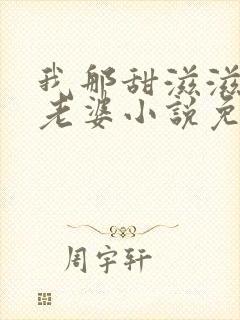 我那甜滋滋
老婆小說免
周宇轩